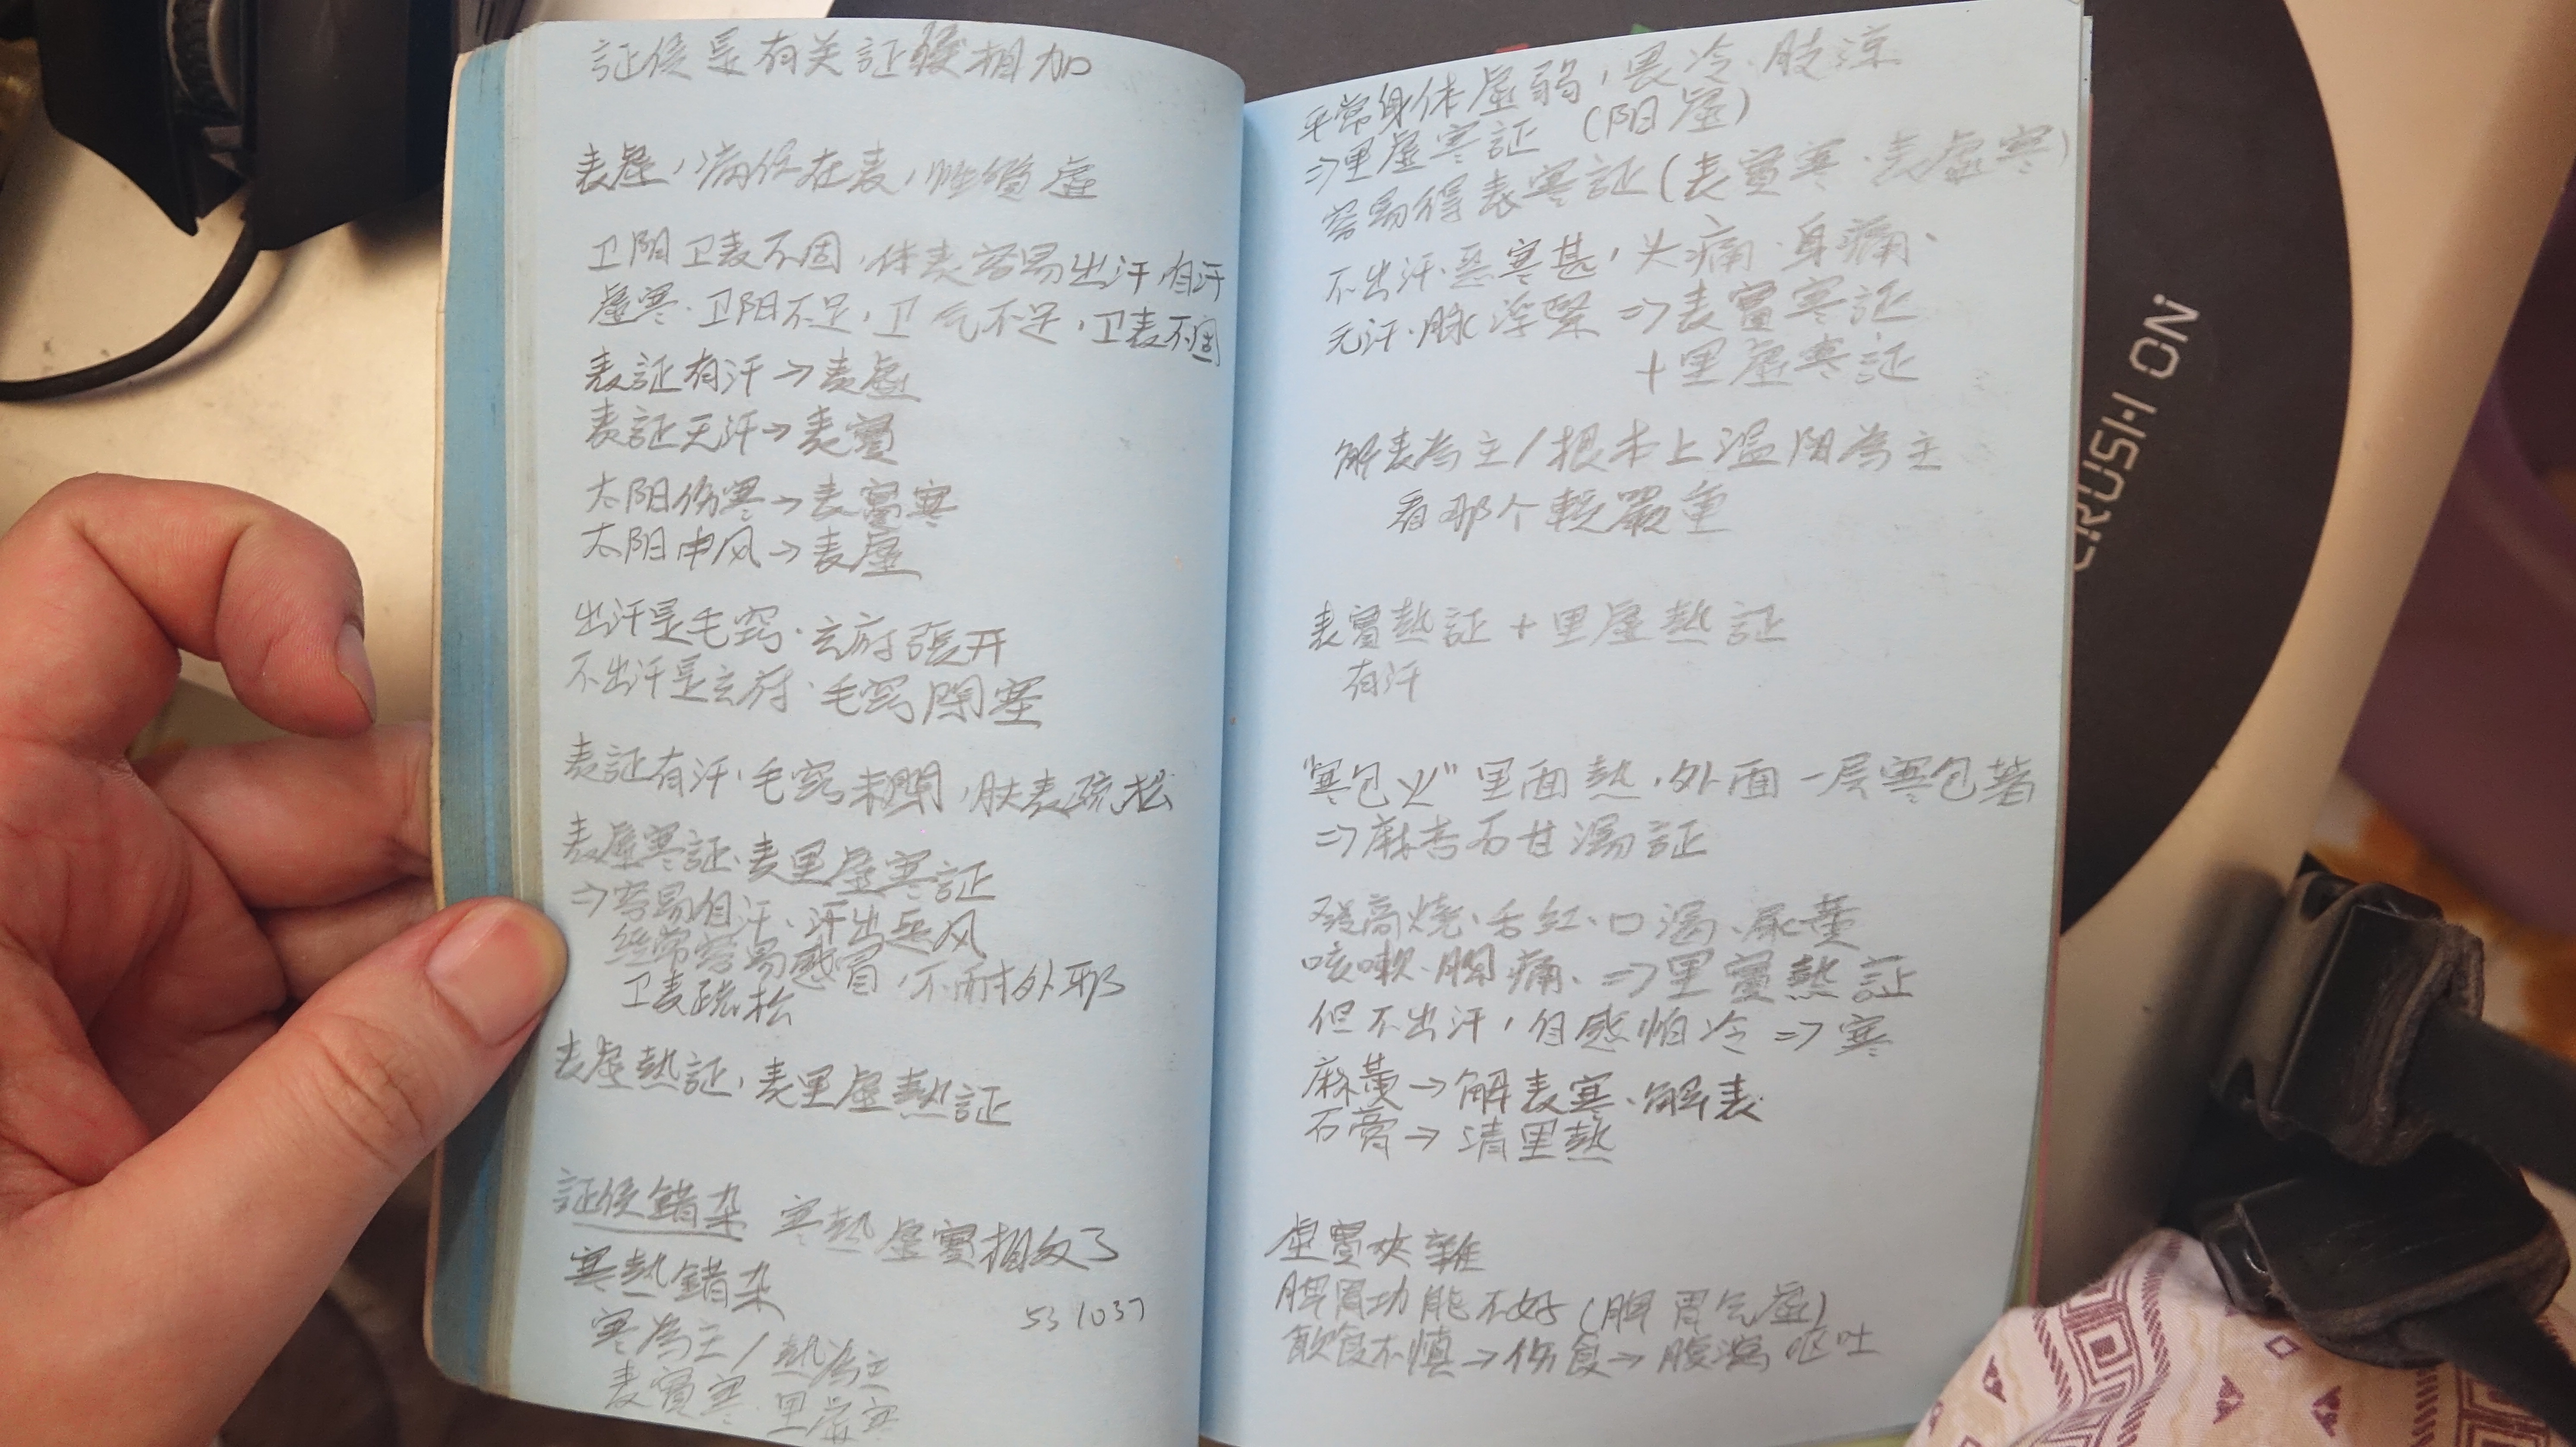 証候是有关証候相加
表虛,病位在表,性質虛
卫阳卫表不固、体表容易出汗、自汗
虛寒、卫阳不足,卫气不足,卫表不固
表証有汗→表虛
表証无汗→表實
太阳伤寒→表實寒
太阳中风→表虛
出汗是毛窍、玄府張开
不出汗是玄府、毛窍閉塞
表証有汗、毛窍未閉,肤表疏松
表虛寒証、表里虛寒証
⇒容易自汗、汗出恶风
经常容易感冒,不耐外邪
卫表疏松
表虛熱証、表里虛熱証
証候錯杂 寒熱虛實相反了
寒熱錯杂
53 1037
寒為主/熱為主
表實寒、里虛寒
平常身体虛弱,畏冷、肢凉
⇒里虛寒証 (阳虛)
容易得表寒証(表實寒、表虛寒)
不出汗、恶寒甚,头痛、身痛、
无汗、脉浮緊⇒表實寒証
+里虛寒証
解表為主/根本上温阳為主
看那个較嚴重
表實熱証+里虛熱証
有汗
"寒包火"里面熱、外面一层寒包著
⇒麻杏石甘湯証
發高烧、舌紅、口渴、尿黄
咳嗽、胸痛、⇒里實熱証
但不出汗,自感怕冷⇒寒
麻黄→解表寒、解表
石膏→清里熱
虛實夾雜
脾胃功能不好(脾胃气虛)
飲食不慎→伤食→腹瀉 呕吐
CRUSH ON